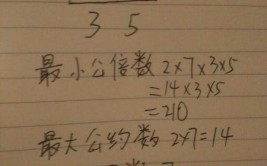 3 5
最小公倍数 2×7×3×5
=14×3×5
=210
最大公约数 2×7=14